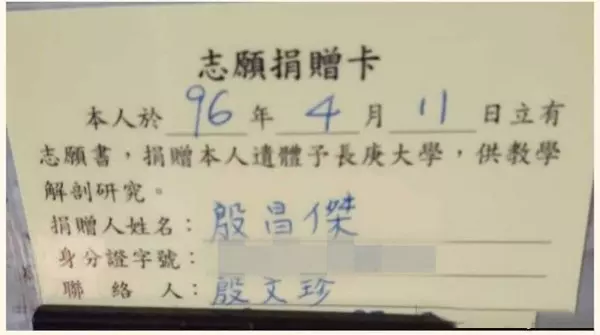 志願捐贈卡
本人於 96 年 4 月 11 日立有
志願書，捐贈本人遺體予長庚大學，供教學
解剖研究。
捐贈人姓名：殷昌傑
身分證字號：
聯絡人：殷文珍